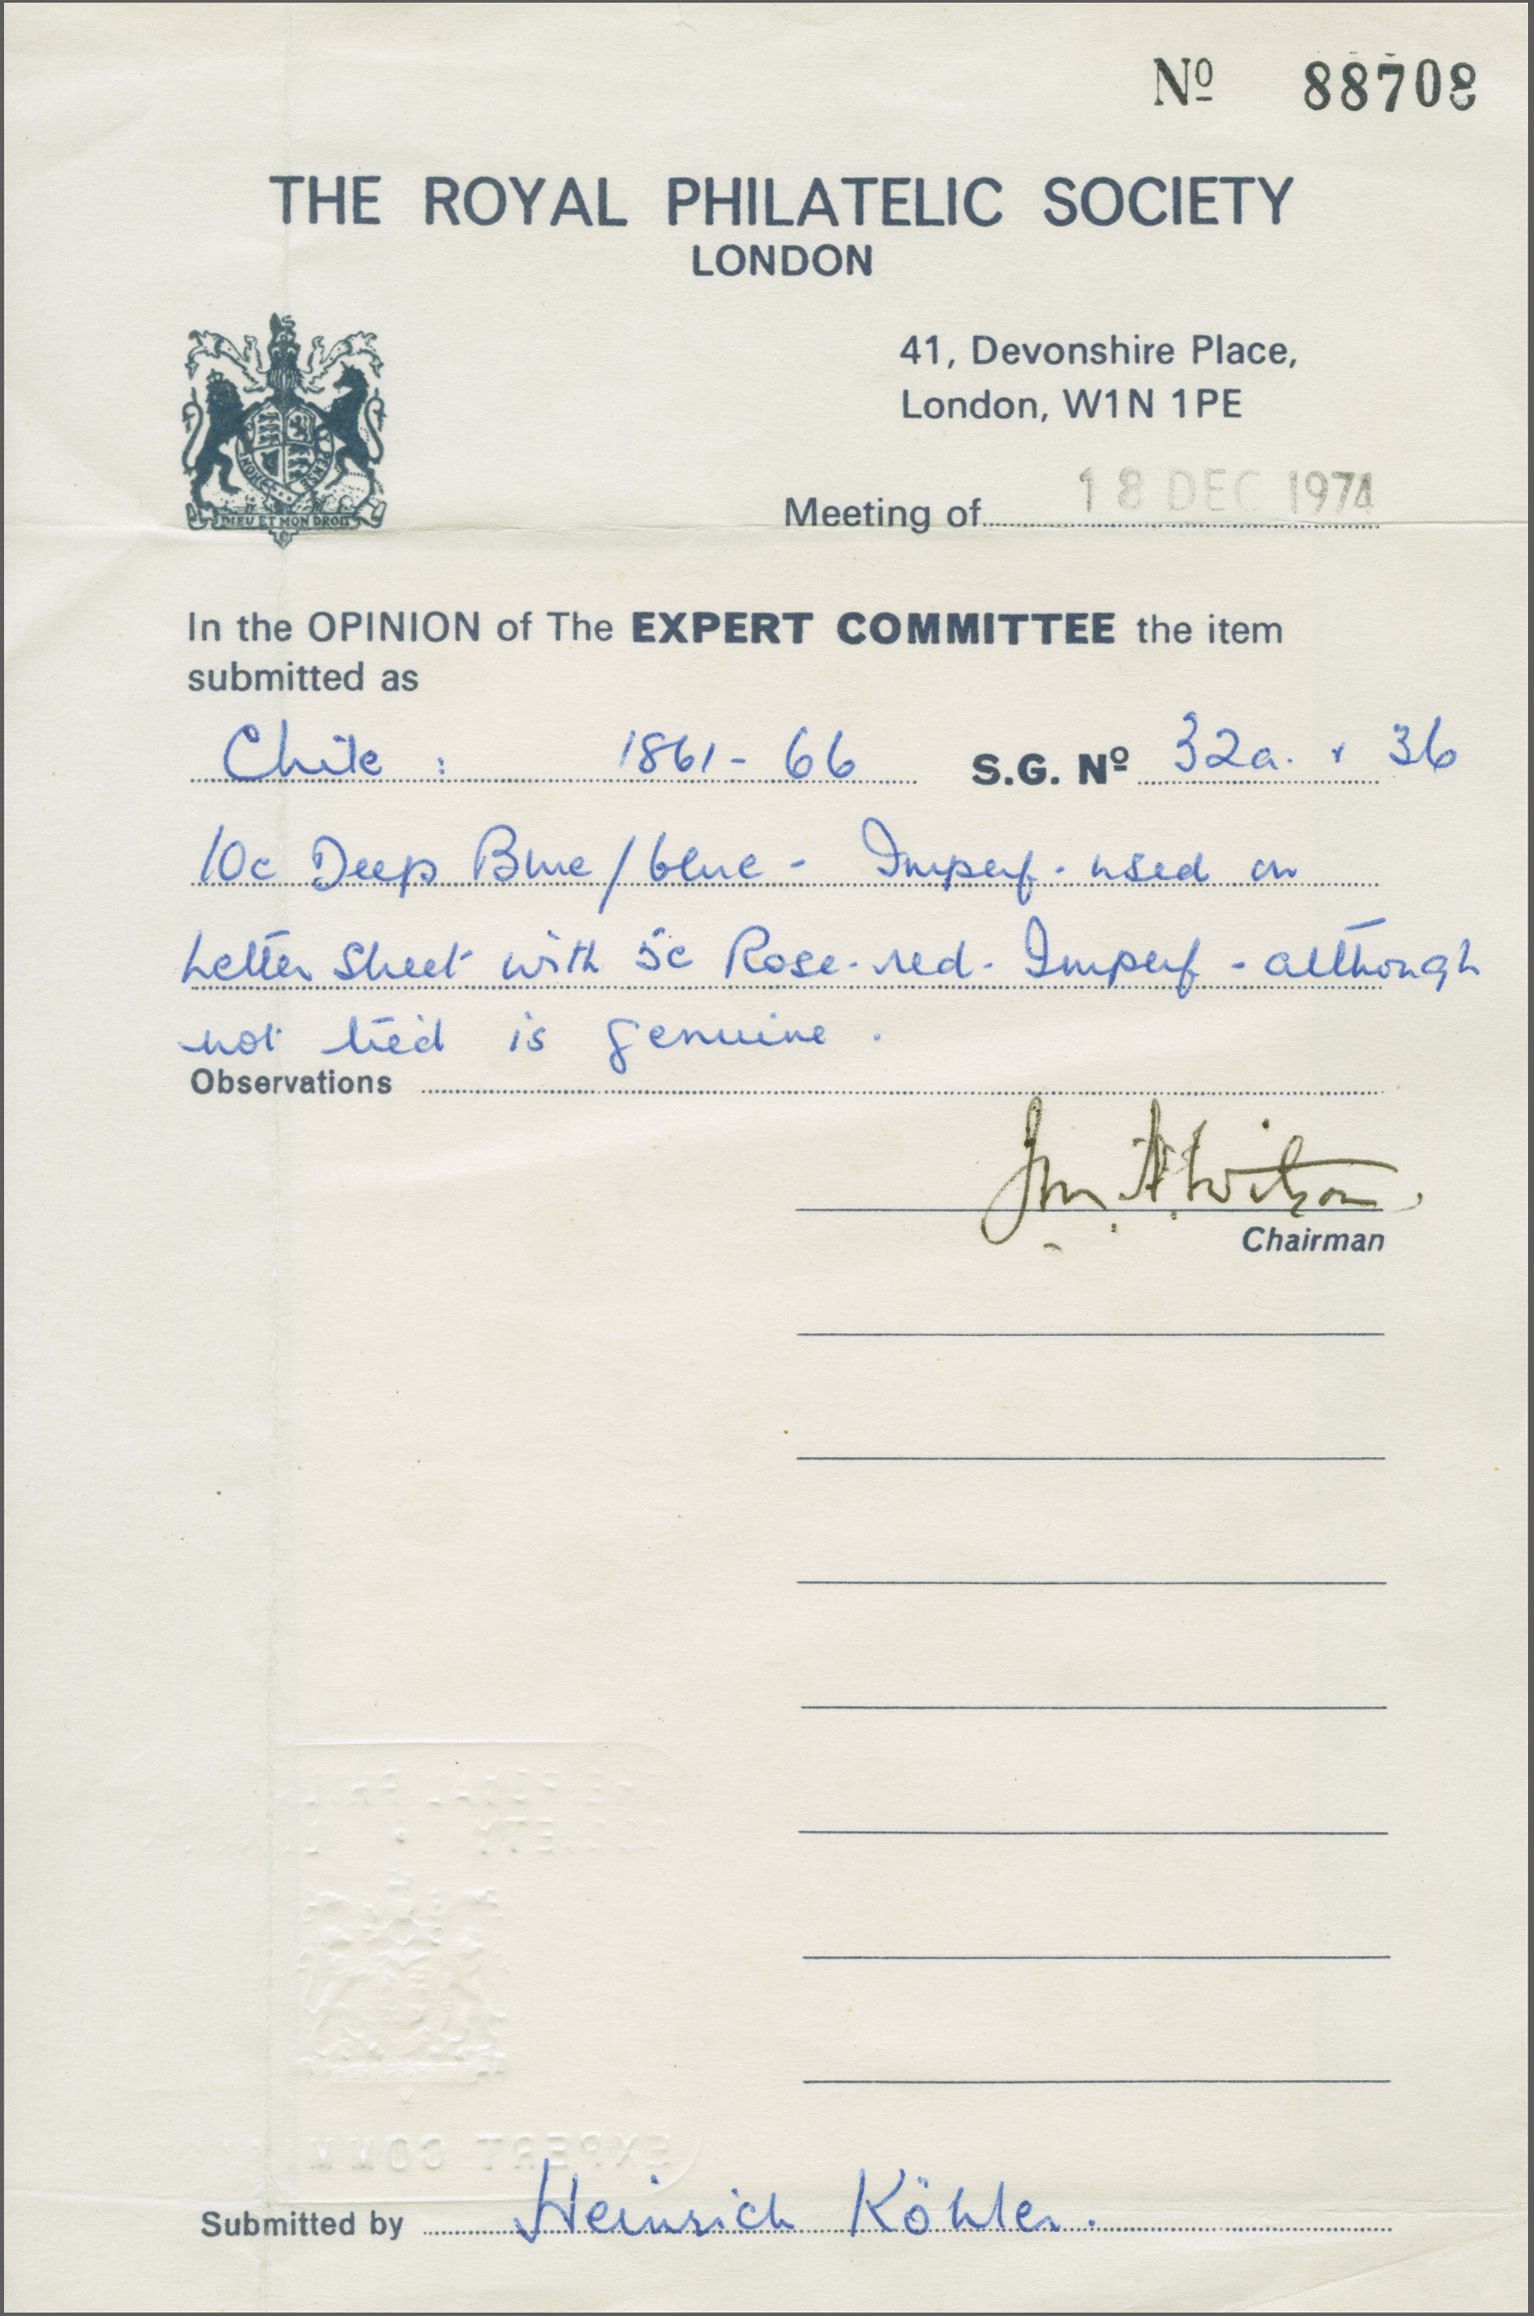 Nº 88708
THE ROYAL PHILATELIC SOCIETY
LONDON
41, Devonshire Place,
London, W1N 1PE
DIEU ET MON DROIT
Meeting of 18 DEC 1974
In the OPINION of The EXPERT COMMITTEE the item
submitted as
Chile : 1861-66 S.G. Nº 32a. + 36
10c Deep Blue/blue - Imperf - used on
Letter Sheet with 5c Rose-red - Imperf - although
not tied is genuine.
Observations
Wilson
Chairman
EXPERT COMM
Submitted by Heinrich Köhler.